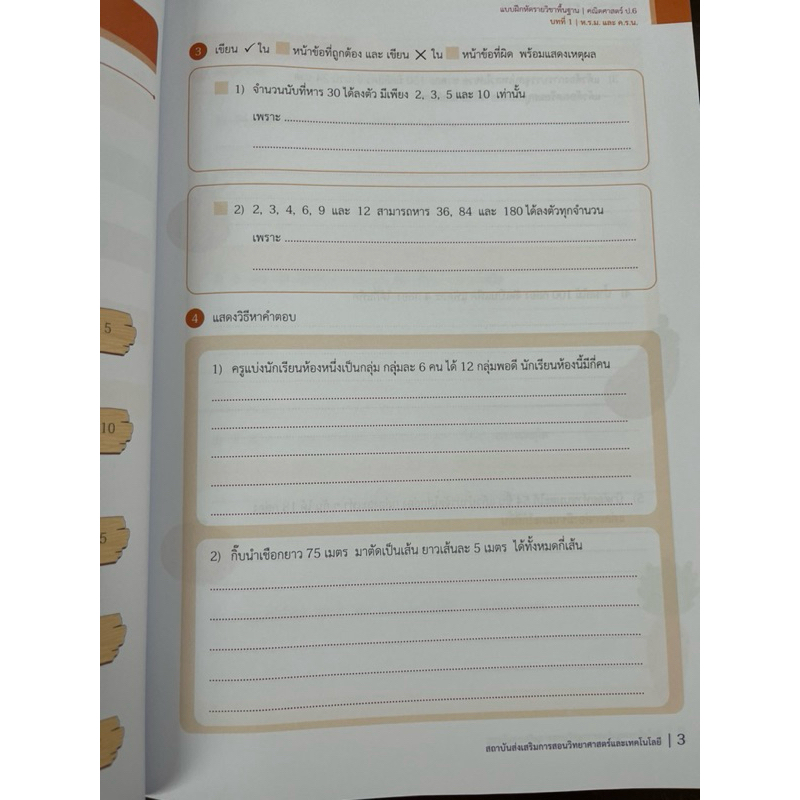 แบบฝึกทักษะรายวิชาพื้นฐาน | คณิตศาสตร์ ป.6
บทที่ 1 | ห.ร.ม. และ ค.ร.น.
3 เขียน ✓ ใน หน้าข้อที่ถูกต้อง และ เขียน ✕ ใน หน้าข้อที่ผิด พร้อมแสดงเหตุผล
1) จำนวนนับที่หาร 30 ได้ลงตัว มีเพียง 2, 3, 5 และ 10 เท่านั้น
เพราะ
2) 2, 3, 4, 6, 9 และ 12 สามารถหาร 36, 84 และ 180 ได้ลงตัวทุกจำนวน
เพราะ
4 แสดงวิธีหาคำตอบ
5
1) ครูแบ่งนักเรียนห้องหนึ่งเป็นกลุ่ม กลุ่มละ 6 คน ได้ 12 กลุ่มพอดี นักเรียนห้องนี้มีกี่คน
10
5
2) กิ๊บนำเชือกยาว 75 เมตร มาตัดเป็นเส้น ยาวเส้นละ 5 เมตร ได้ทั้งหมดกี่เส้น
สถาบันส่งเสริมการสอนวิทยาศาสตร์และเทคโนโลยี | 3